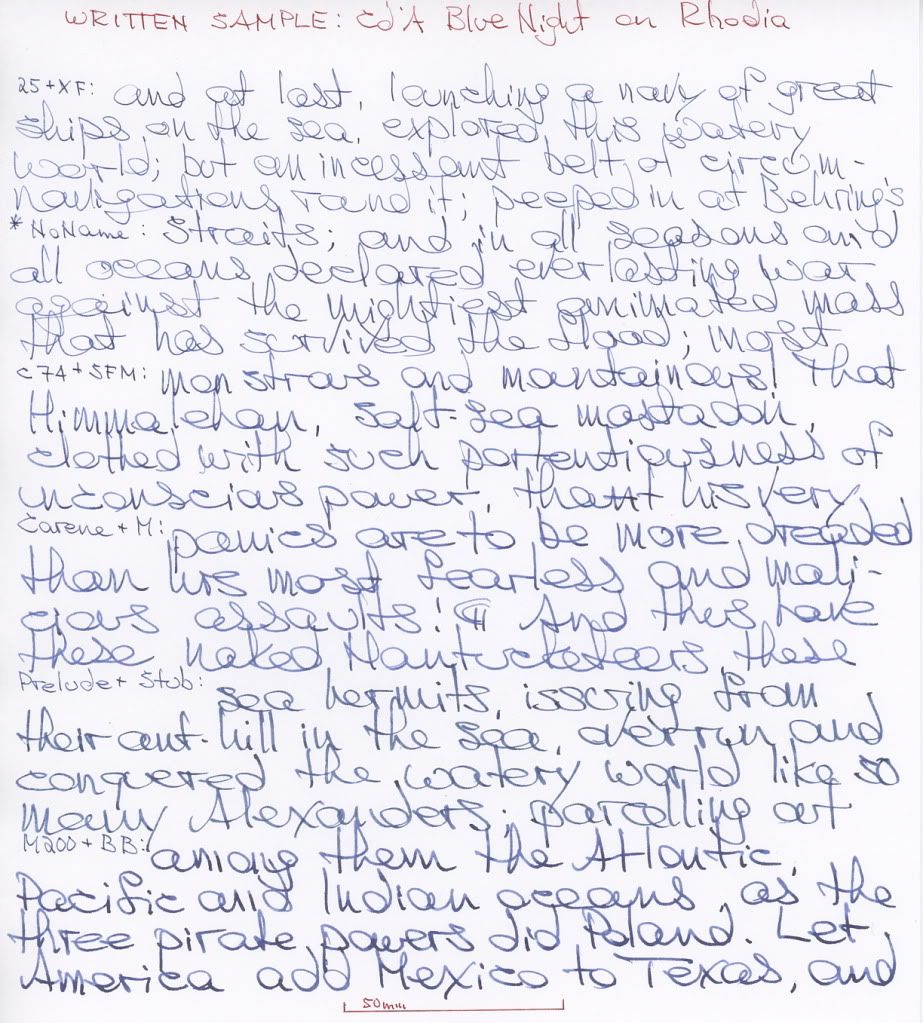 WRITTEN SAMPLE: Cd'A Blue Night on Rhodia
25+XF: and at last, launching a navy of great
ships on the sea, explored this watery
world; but an incessant belt of circum-
navigations round it; peeped in at Behring's
* NoName: Straits; and in all seasons and
all oceans declared everlasting war
against the mightiest animated mass
that has survived the flood; most
C74+SFM: monstrous and mountainous! That
Himmalehan, salt-sea mastadon,
clothed with such portentiousness of
unconscious power, that his very
Carene + M: panics are to be more dreaded
than his most fearless and mali-
cious assaults! ¶ And thus have
these naked Nantucketeers, these
Prelude + Stub: sea hermits, issuing from
their ant-hill in the sea, overrun and
conquered the watery world like so
many Alexanders; parcelling out
M200 + BB: among them the Atlantic,
Pacific and Indian oceans, as the
three pirate powers did Poland. Let
America add Mexico to Texas, and
50mm